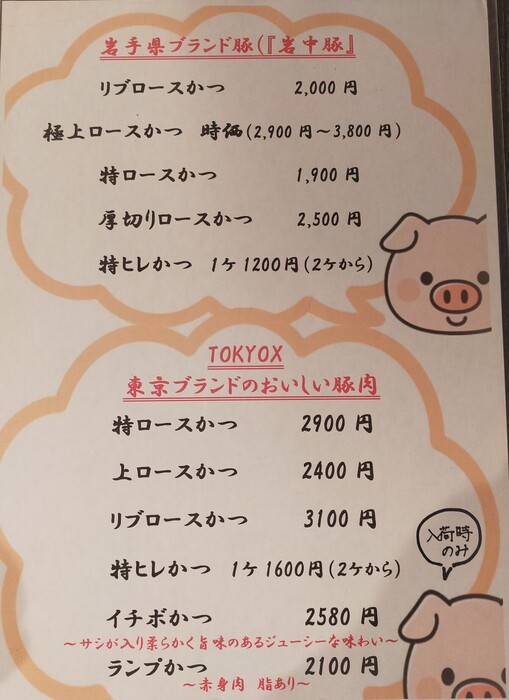 岩手県ブランド豚(『岩中豚』
リブロースかつ 2,000 円
極上ロースかつ 時価(2,900 円～3,800 円)
特ロースかつ 1,900 円
厚切りロースかつ 2,500 円
特ヒレかつ 1ケ 1200円(2ケから)
TOKYOX
東京ブランドのおいしい豚肉
特ロースかつ 2900 円
上ロースかつ 2400 円
リブロースかつ 3100 円
特ヒレかつ 1ケ 1600円(2ケから)
入荷時
のみ
イチボかつ 2580 円
～サシが入り柔らかく旨味のあるジューシーな味わい～
ランプかつ 2100 円
～赤身肉 脂あり～